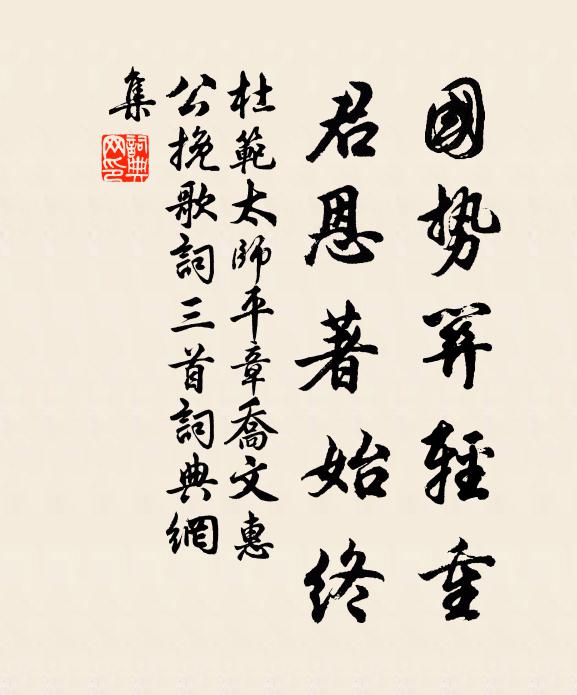 國勢關輕重
君恩著始終
杜範太師平章喬文惠
公挽歌詞三首詞典網
集
詞典網印